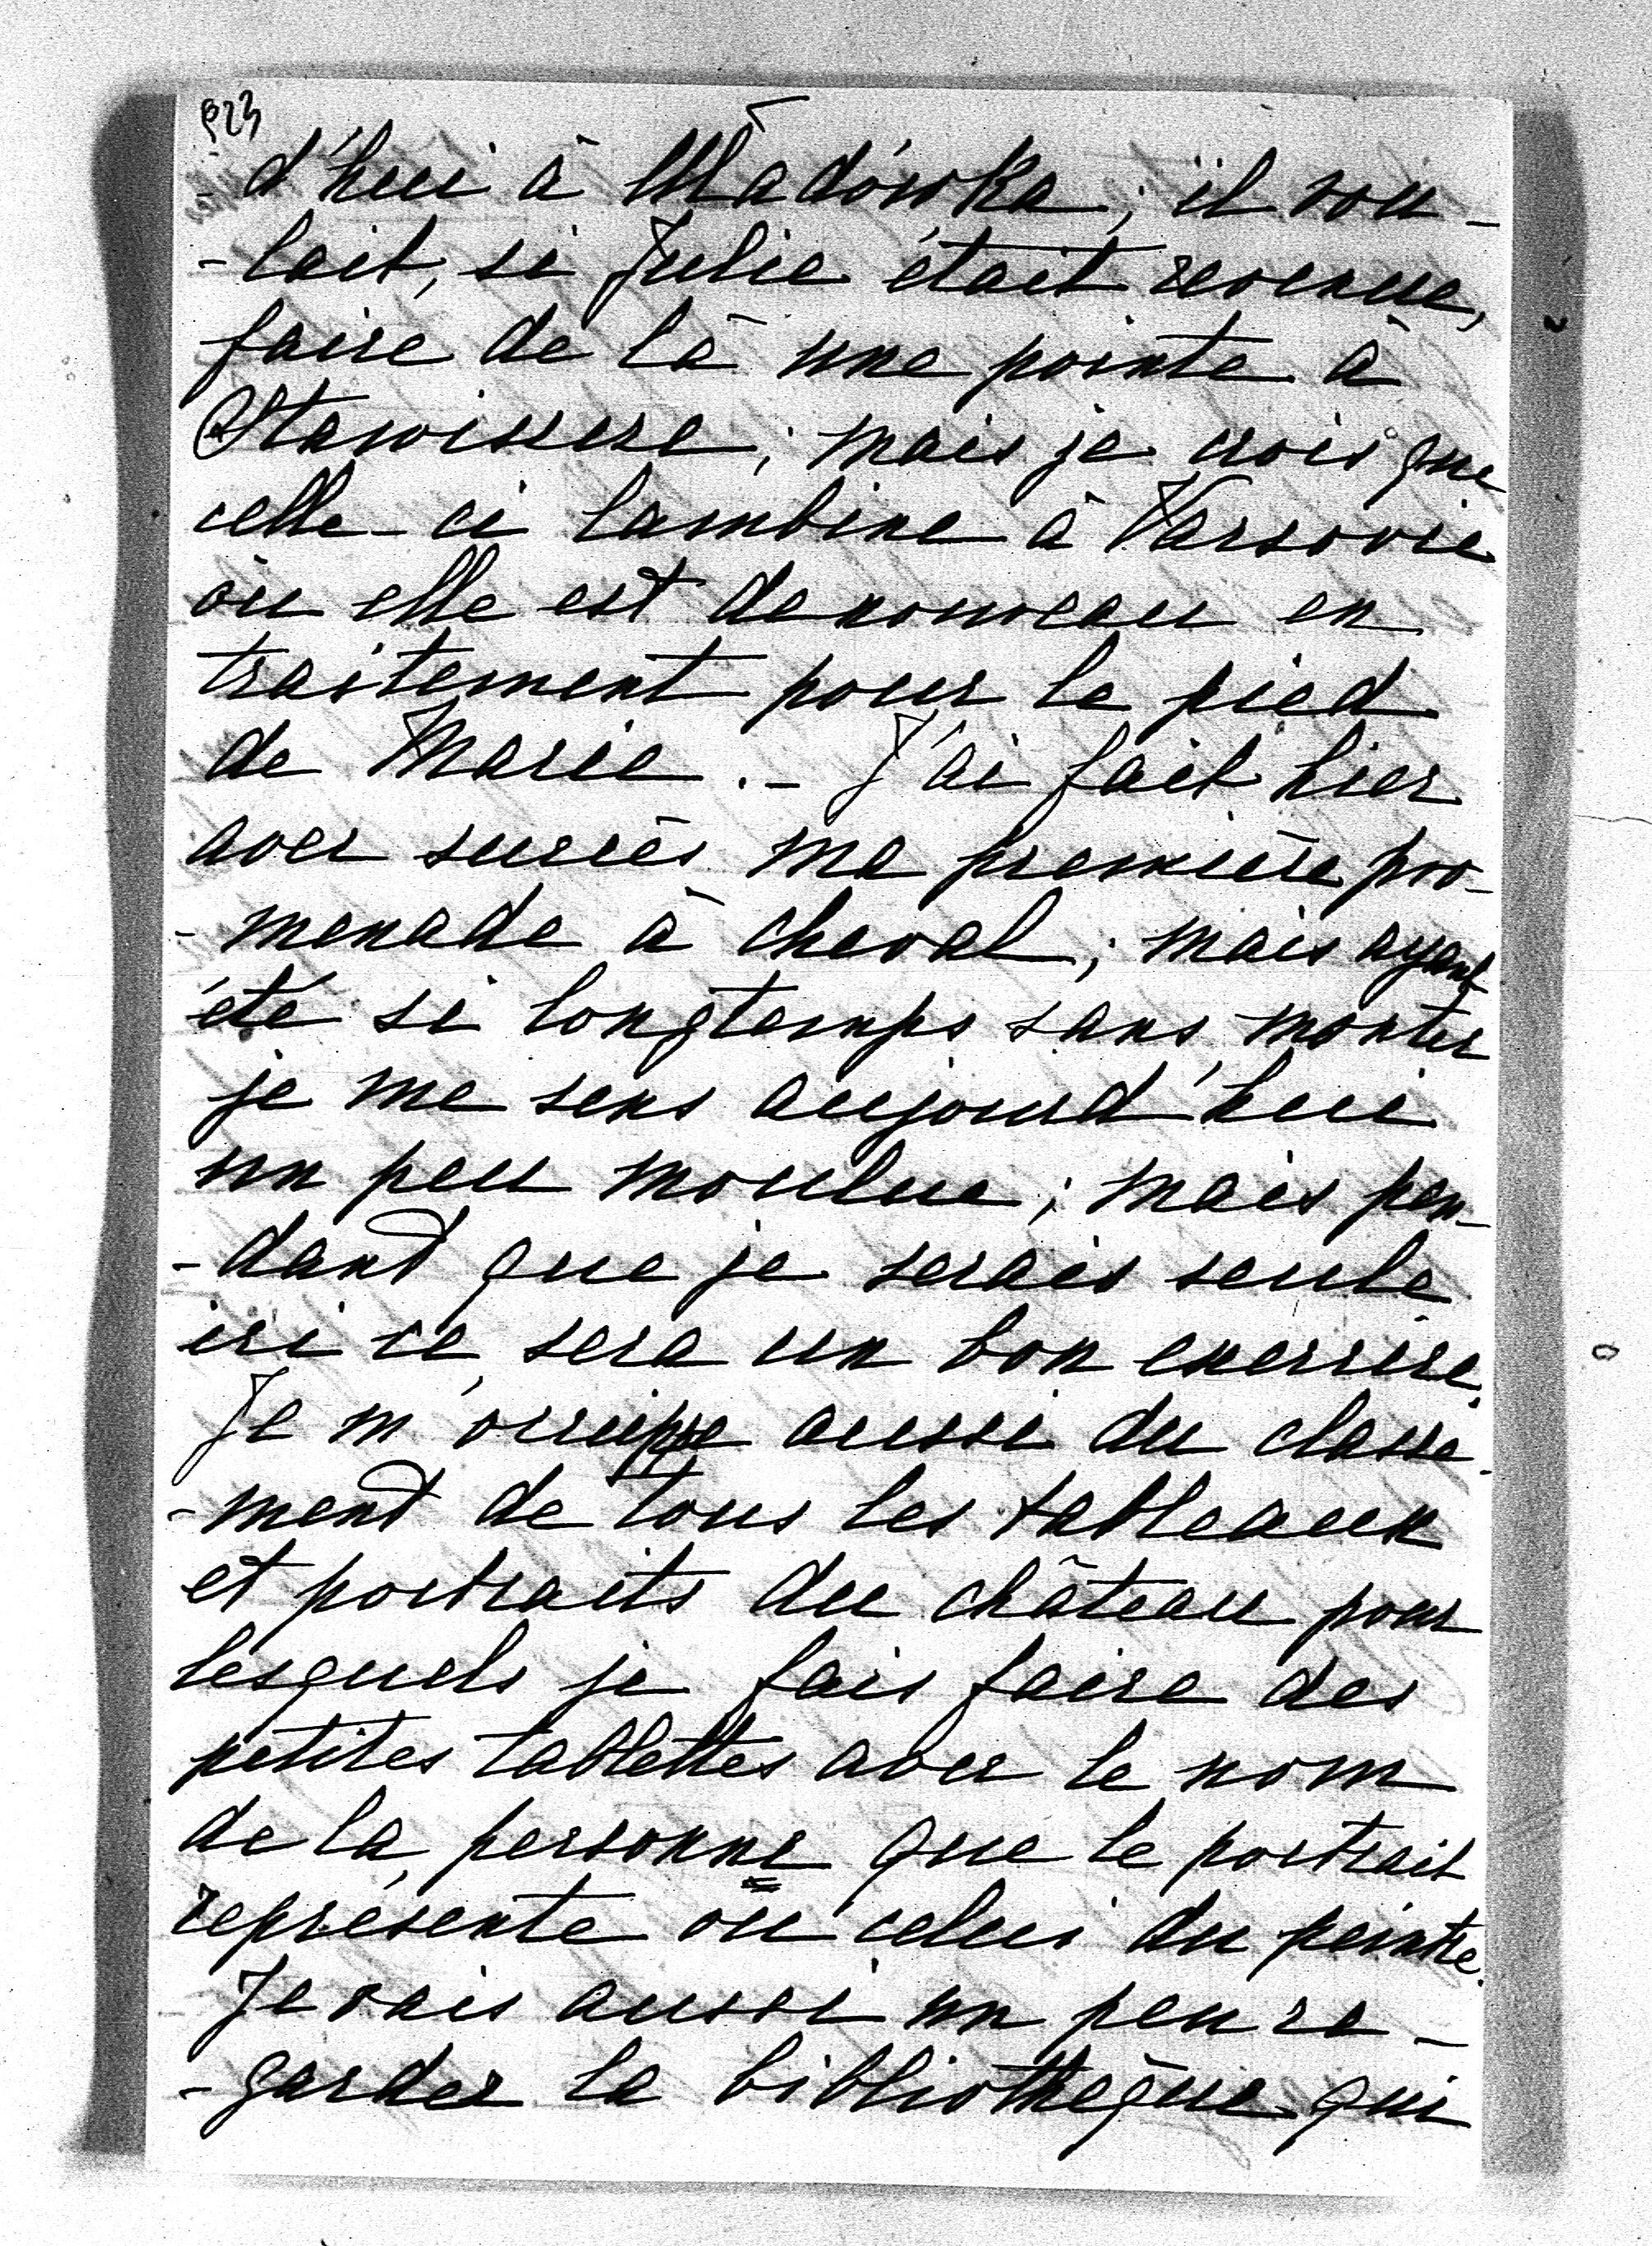 923
-d'hui à Madówka ; il vou-
-lait, si Julie était revenue,
faire de là une pointe à
Stawiszcze ; mais je crois que
celle-ci lambine à Varsovie
où elle est de nouveau en
traitement pour le pied
de Marie. - J'ai fait hier
avec succès ma première pro-
-menade à cheval ; mais ayant
été si longtemps sans monter
je me sens aujourd'hui
un peu moulue ; mais pen-
-dant que je serais seule
ici ce sera un bon exercice.
Je m'occupe aussi du classe-
-ment de tous les tableaux
et portraits du château pour
lesquels je fais faire des
petites tablettes avec le nom
de la personne que le portrait
représente ou celui du peintre.
Je vais aussi un peu re-
-garder la bibliothèque qui